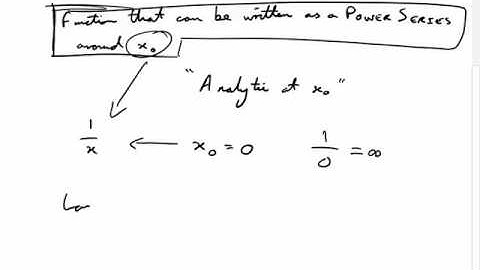 Function that can be written as a POWER SERIES
around x₀
"Analytic at x₀"
1/x ← x₀ = 0 1/0 = ∞